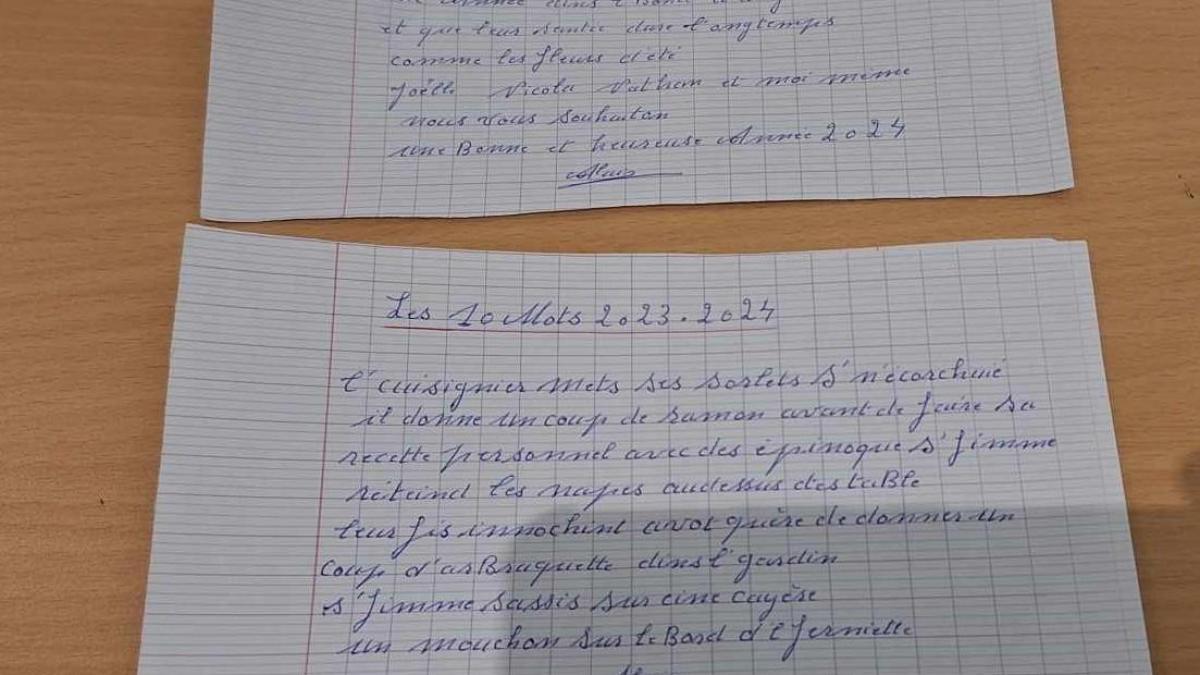 et que leus santée dure l'ongtemps
comme les fleurs d'été
Joëlle Nicolas Nathan et moi même
nous vous souhaiton
une Bonne et heureuse Année 2024
Les 10 Mots 2023.2024
l'cuisignier mets ses sorlets s'n'écorchuié
il donne un coup de ramon avant de faire sa
recette personnel avec des épinoque s'fimme
réteind les napes audessus des taBle
leur fis innochint avot quère de donner un
coup d'asBraquette dins l'gardin
s'fimme sassis sur eine cayère
un mouchon sur le Bord d'el fernielle